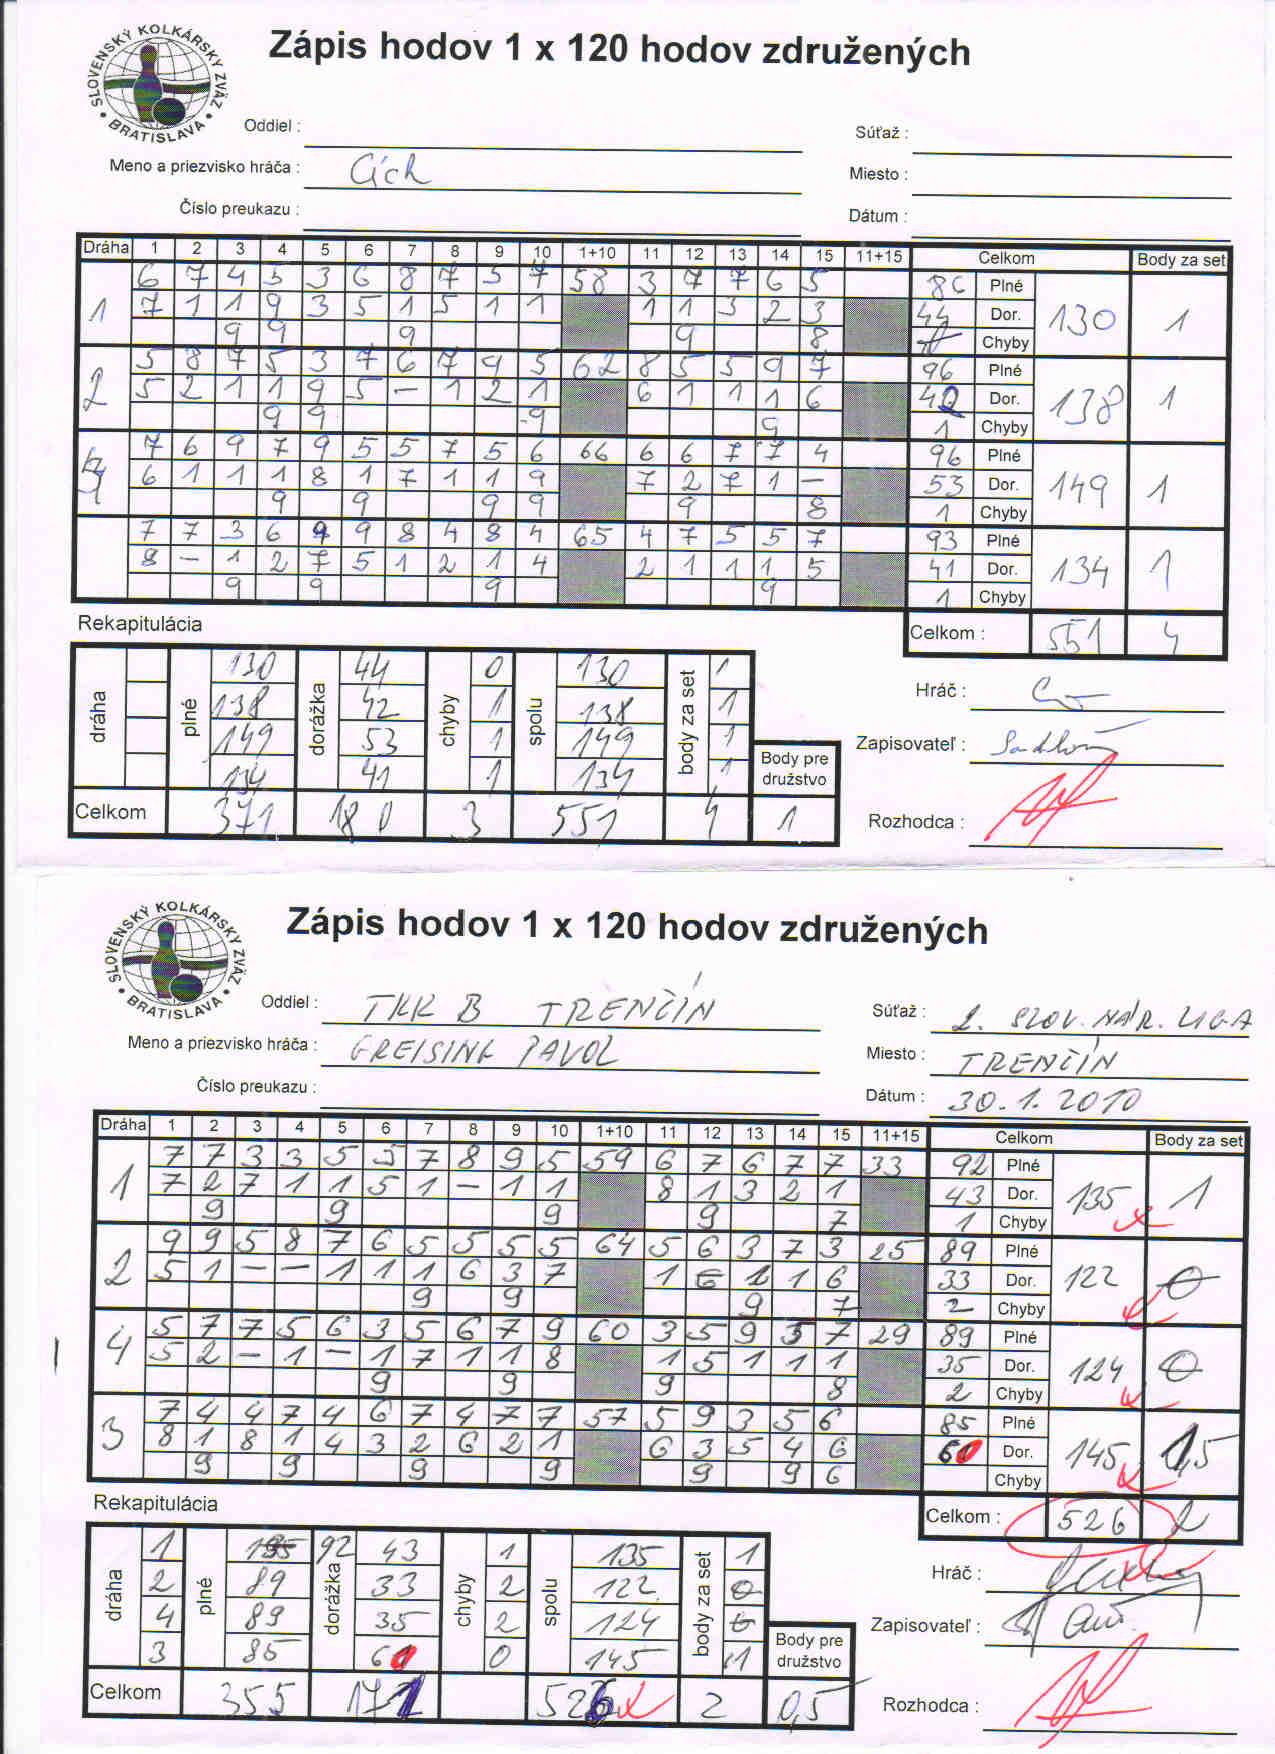 SLOVENSKÝ KOLKÁRSKY ZVÄZ • BRATISLAVA •
Zápis hodov 1 x 120 hodov združených
Oddiel :
Súťaž :
Meno a priezvisko hráča : Cích
Miesto :
Číslo preukazu :
Dátum :
Dráha 1 2 3 4 5 6 7 8 9 10 1+10 11 12 13 14 15 11+15 Celkom Body za set
6 7 4 5 3 6 8 7 5 7 58 3 7 7 6 5 86 Plné
1 7 1 1 9 3 5 1 5 1 1 1 1 3 2 3 44 Dor. 130 1
9 9 9 9 8 Chyby
5 8 7 5 3 7 6 7 9 5 62 8 5 5 9 7 96 Plné
2 5 2 1 1 9 5 – 1 2 1 6 1 1 1 6 42 Dor. 138 1
9 9 9 9 1 Chyby
7 6 9 7 9 5 5 7 5 6 66 6 6 7 7 4 96 Plné
6 1 1 1 8 1 7 1 1 9 7 2 7 1 – 53 Dor. 149 1
9 9 9 9 9 8 1 Chyby
7 7 3 6 9 9 8 4 8 4 65 4 7 5 5 7 93 Plné
8 – 1 2 7 5 1 2 1 4 2 1 1 1 5 41 Dor. 134 1
9 9 9 9 1 Chyby
Rekapitulácia
Celkom : 551 4
dráha plné dorážka chyby spolu body za set
130 44 0 130 1
138 42 1 138 1
149 53 1 149 1
134 41 1 134 1
Body pre družstvo
Celkom 371 180 3 551 4 1
Hráč :
Zapisovateľ :
Rozhodca :
SLOVENSKÝ KOLKÁRSKY ZVÄZ • BRATISLAVA •
Zápis hodov 1 x 120 hodov združených
Oddiel : TKK B TRENČÍN
Súťaž : 2. SLOV. NÁR. LIGA
Meno a priezvisko hráča : GREISING PAVOL
Miesto : TRENČÍN
Číslo preukazu :
Dátum : 30.1.2010
Dráha 1 2 3 4 5 6 7 8 9 10 1+10 11 12 13 14 15 11+15 Celkom Body za set
7 7 3 3 5 5 7 8 9 5 59 6 7 6 7 7 33 92 Plné
1 7 2 7 1 1 5 1 – 1 1 8 1 3 2 1 43 Dor. 135 1
9 9 9 9 7 1 Chyby
9 9 5 8 7 6 5 5 5 5 64 5 6 3 7 3 25 89 Plné
2 5 1 – – 1 1 1 6 3 7 1 6 1 1 6 33 Dor. 122 0
9 9 9 7 2 Chyby
5 7 7 5 6 3 5 6 7 9 60 3 5 9 5 7 29 89 Plné
4 5 2 – 1 – 1 7 1 1 8 1 5 1 1 1 35 Dor. 124 0
9 9 9 8 2 Chyby
7 4 4 7 4 6 7 4 7 7 57 5 9 3 5 6 85 Plné
3 8 1 8 1 4 3 2 6 2 1 6 3 5 4 6 60 Dor. 145 1,5
9 9 9 9 9 9 6 Chyby
Rekapitulácia
Celkom : 526 2
dráha plné dorážka chyby spolu body za set
1 92 43 1 135 1
2 89 33 2 122 0
4 89 35 2 124 0
3 85 60 0 145 1
Body pre družstvo
Celkom 355 171 526 2 0,5
Hráč :
Zapisovateľ :
Rozhodca :